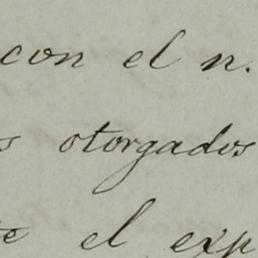 con el n.
s otorgados
te el exp